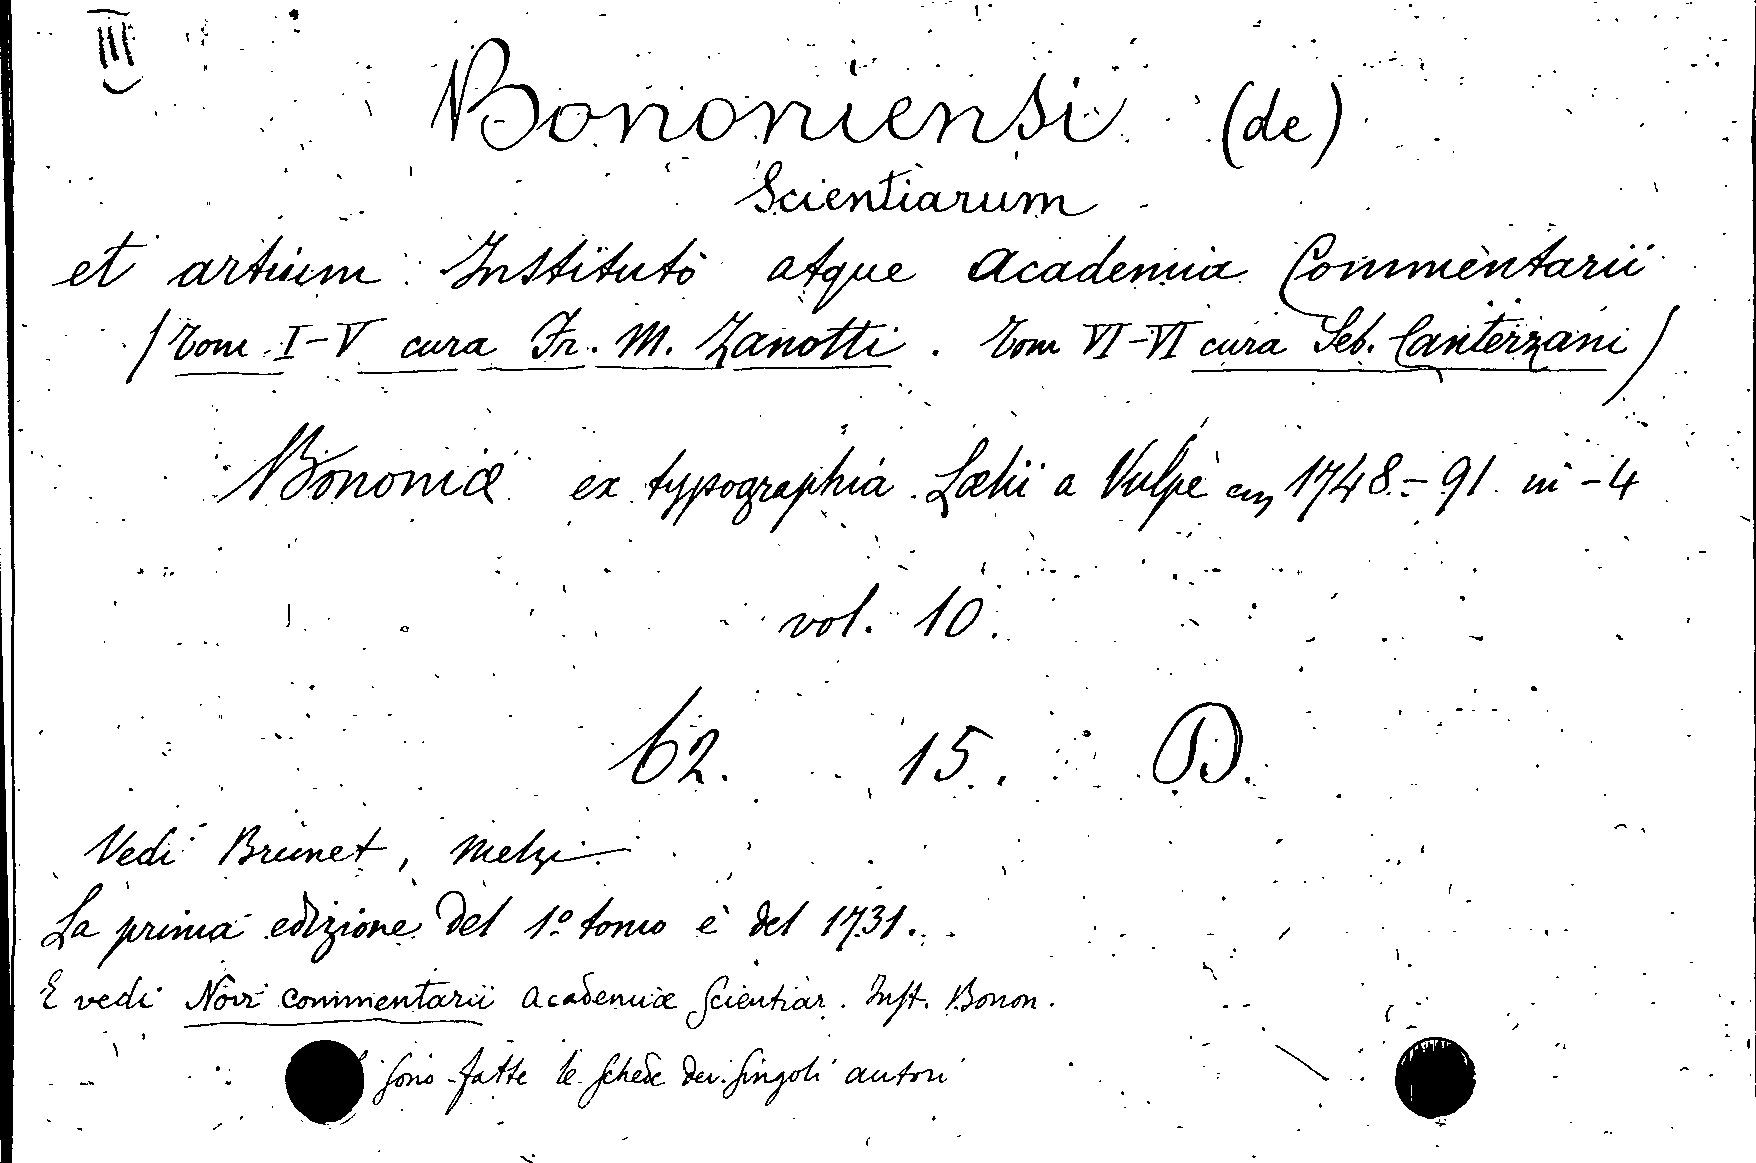 III
Bononiensi (de)
Scientiarum
et artium Instituto atque Academia Commentarii
(Tom I-V cura Fr. M. Zanotti. Tom VI-VI cura Seb. Canterzani)
Bononiæ ex typographia Lælii a Vulpe 1748-91 in-4
vol. 10.
62. 15. D.
Vedi Brunet, Melzi.
La prima edizione del 1º tomo è del 1731.
E vedi Novi commentarii Academiæ Scientiar. Inst. Bonon.
sono fatte le schede dei singoli autori